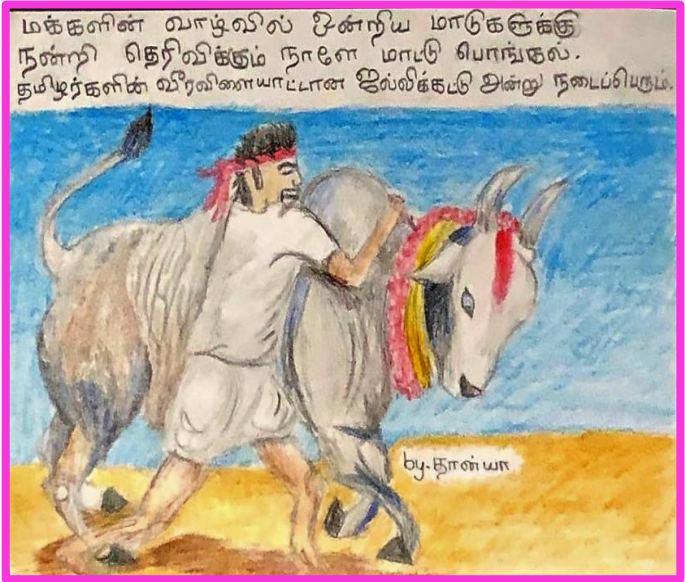 மக்களின் வாழ்வில் ஒன்றிய மாடுகளுக்கு
நன்றி தெரிவிக்கும் நாளே மாட்டு பொங்கல்.
தமிழர்களின் வீரவிளையாட்டான ஜல்லிக்கட்டு அன்று நடைப்பெரும்.
by-தான்யா